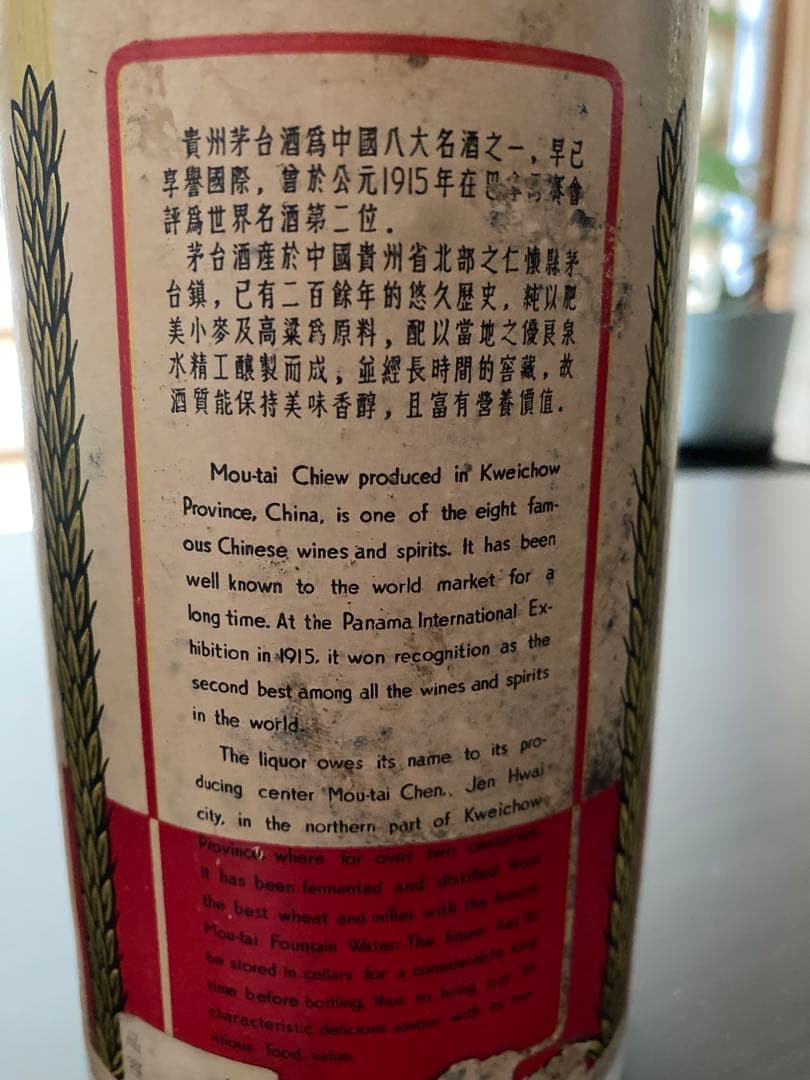 貴州茅台酒爲中國八大名酒之一，早已
享譽國際，曾於公元1915年在巴拿馬賽會
評爲世界名酒第二位．
茅台酒産於中國貴州省北部之仁懷縣茅
台鎮，已有二百餘年的悠久歷史，純以肥
美小麥及高粱爲原料，配以當地之優良泉
水精工釀製而成，並經長時間的窖藏，故
酒質能保持美味香醇，且富有營養價值．
Mou-tai Chiew produced in Kweichow
Province, China, is one of the eight fam-
ous Chinese wines and spirits. It has been
well known to the world market for a
long time. At the Panama International Ex-
hibition in 1915, it won recognition as the
second best among all the wines and spirits
in the world.
The liquor owes its name to its pro-
ducing center Mou-tai Chen, Jen Hwai
city, in the northern part of Kweichow
Province, where for over two centuries
it has been fermented and distilled from
the best wheat and millet with the famous
Mou-tai Fountain Water. The liquor has to
be stored in cellars for a considerable long
time before bottling, thus to bring out its
characteristic delicious savour with its nut-
ritious food value.